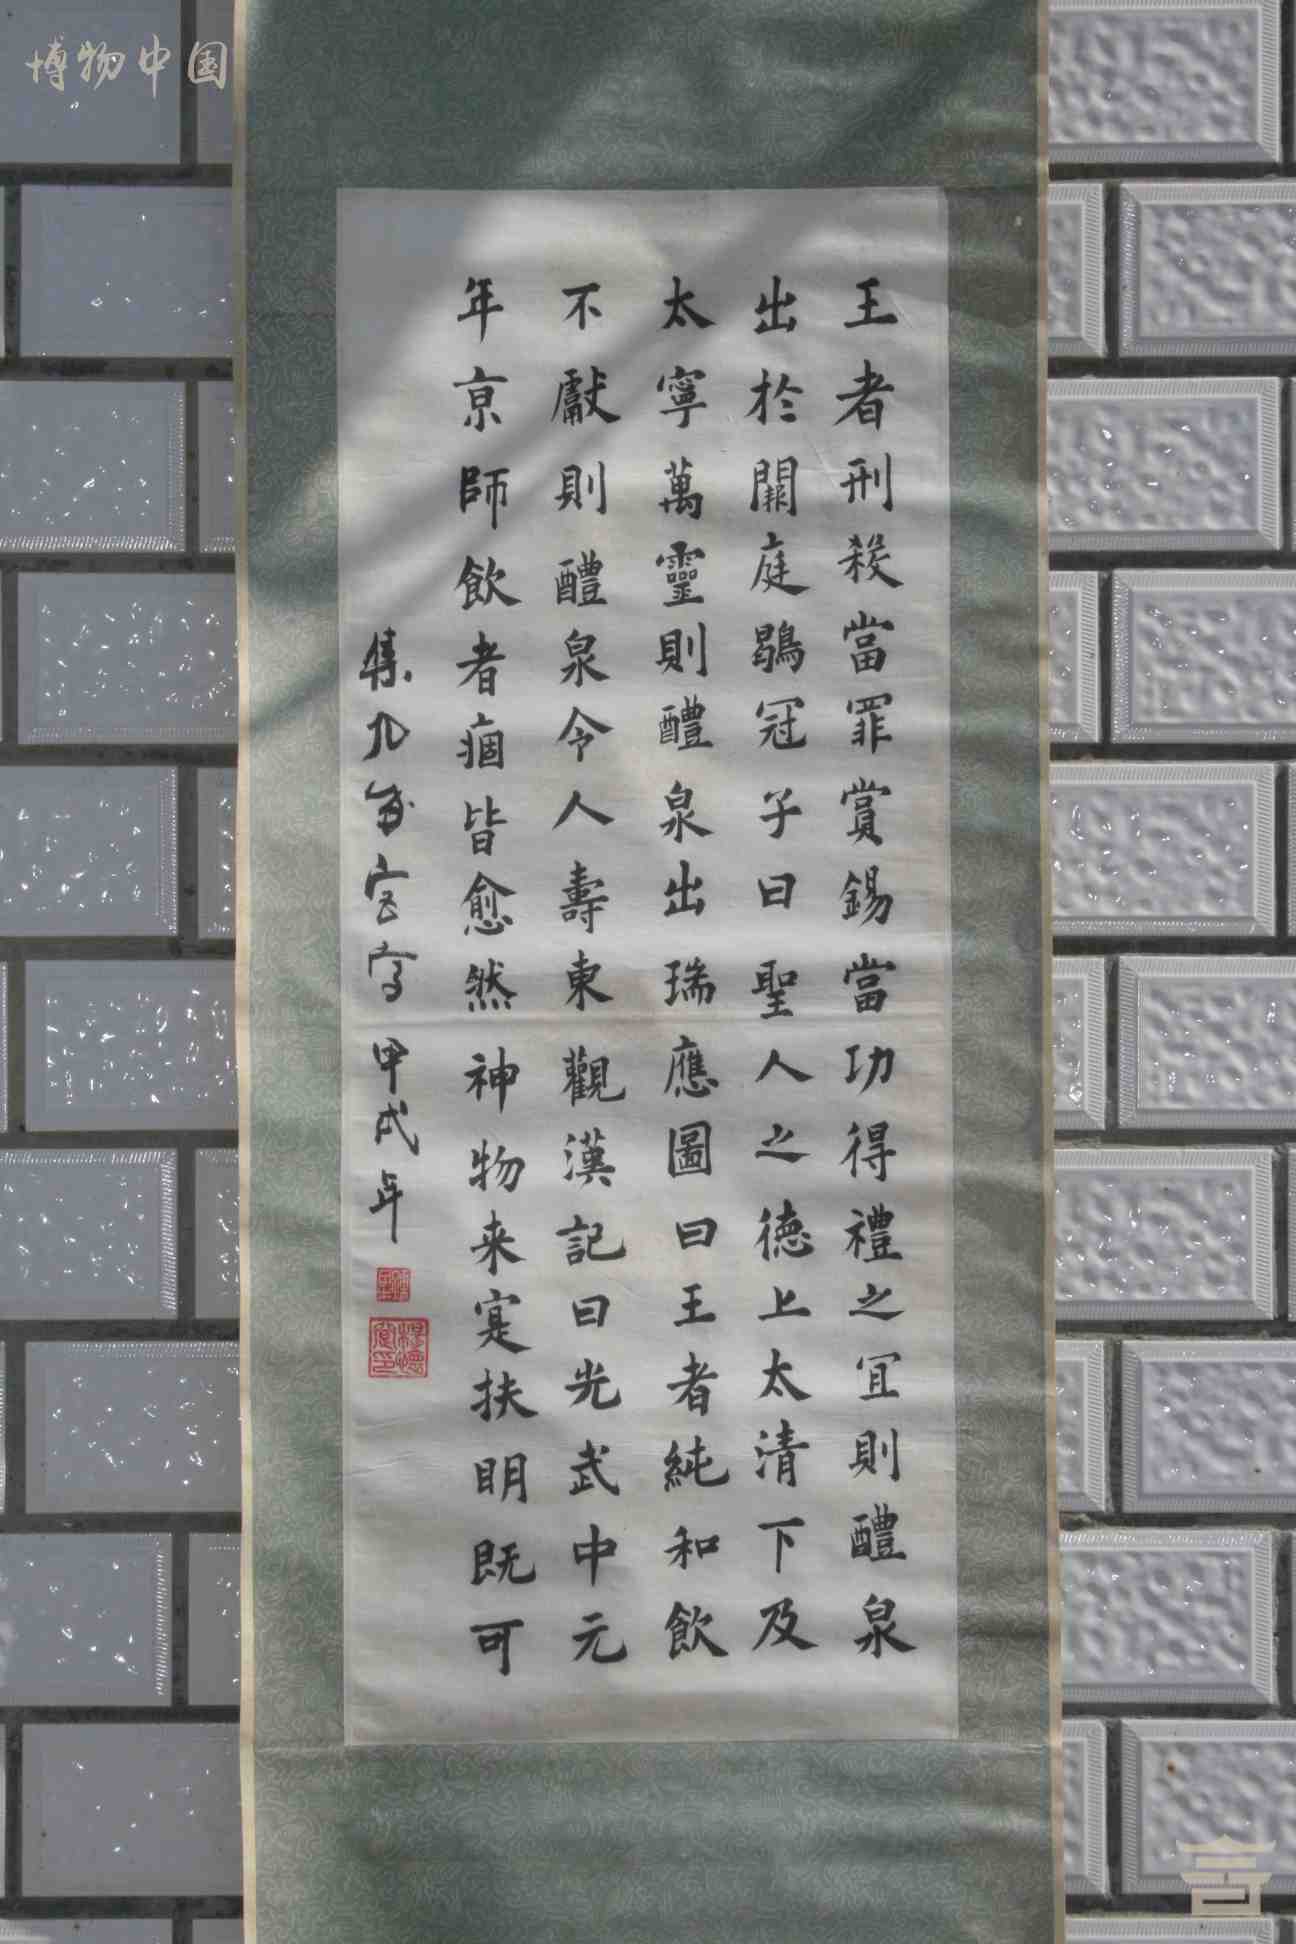 博物中国
王者刑殺當罪賞錫當功得禮之宜則醴泉
出於闕庭鶡冠子曰聖人之德上太清下及
太寧萬靈則醴泉出瑞應圖曰王者純和飲
不獻則醴泉令人壽東觀漢記曰光武中元
年京師飲者痼皆愈然神物来寔扶明既可
集九成宮寫甲戌年